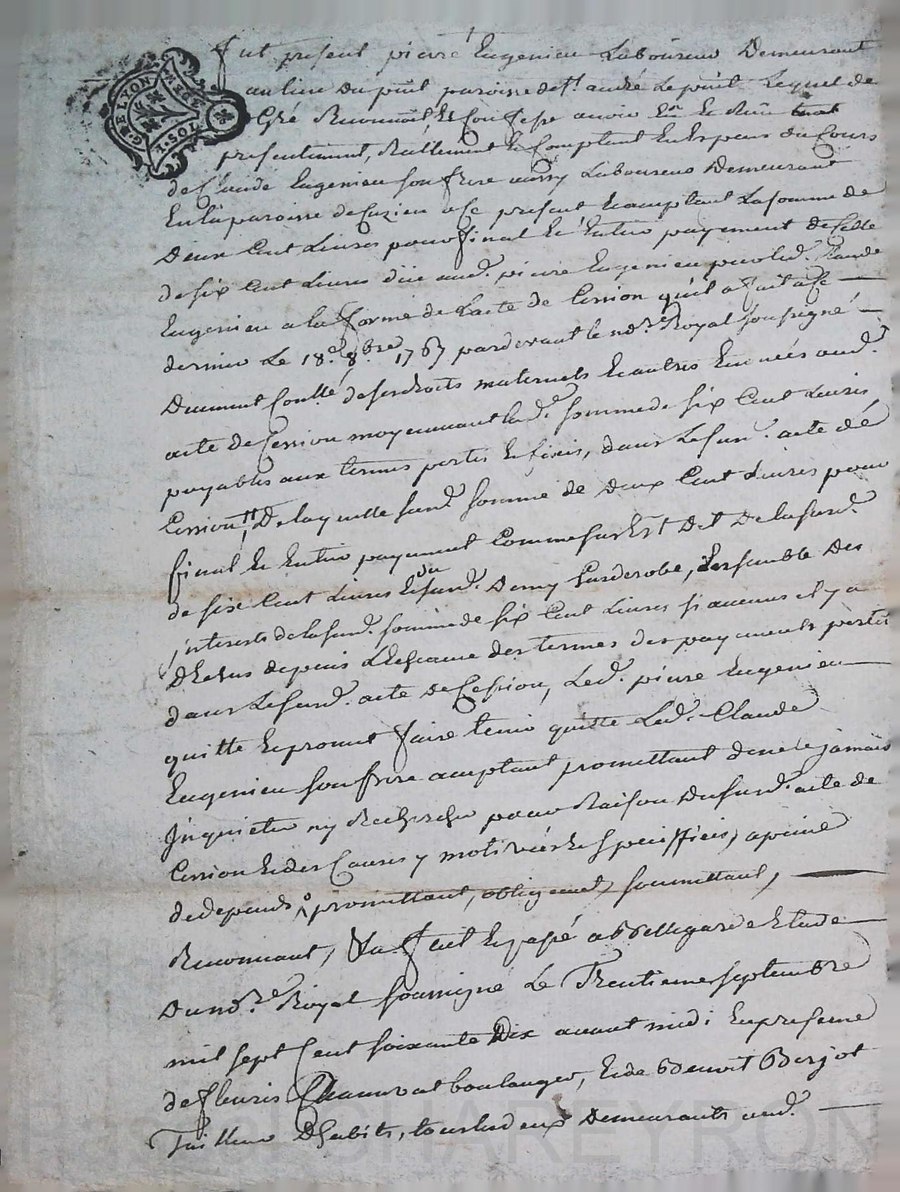 G. DE LYON
1. SOL
Fut présent pierre Eugenieu Laboureur Demeurant
au lieu du puit paroisse de St. andré Le puit Lequel de
Gré Reconnoit Et Confesse avoir Eu et Reçu
présentement, Réellement Et Comptant En Espèces du Cours
de Claude Eugenieu Son frere aussy Laboureur Demeurant
En la paroisse de Cuzieu a ce present Et acceptant La somme de
Deux Cent Livres pour final Et Entier payement de Celle
de six Cent Livres düe aud. pierre Eugenieu par led. Claude
Eugenieu a la forme de Lacte de Cession quil a fait a Ce
dernier Le 18.e 8bre 1767 pardevant le no.re Royal soussigné
Duement Conllé, de ses droits maternels Et autres Enoncés aud.
acte de Cession moyennant lad. somme de six Cent Livres
payables aux termes portés Et fixés, dans Le susd. acte de
Cession, De laquelle susd. somme de Deux Cent Livres pour
final Et Entier payement Comme sus Est Dit De la susd.
de six Cent Livres Et du susd. Demy Garderobe, Ensemble Des
jnterets de la susd. somme de six Cent Livres si aucuns il y a
D'Echus depuis L'Echeance des termes des payements portés
dans Le susd. acte de Cession, Led. pierre Eugenieu
quitte Et promet faire tenir quitte Led. Claude
Eugenieu son frere acceptant promettant de ne le jamais
Jnquieter ny Rechercher pour Raison Du susd. acte de
Cession Et des Causes y motivées Et Specifiées, a peine
de depends, promettant, obligeant, soumettant,
Renonçant, Fa fait Et passé a Bellegarde Etude
Du no.re Royal soussigné Le Trentieme septembre
mil sept Cent soixante Dix avant midi En presence
de fleuris Chaumat boulanger, Et de Benoit Berjot
Tailleur D'habits, tous les deux Demeurants aud.
Pascal CHAREYRON